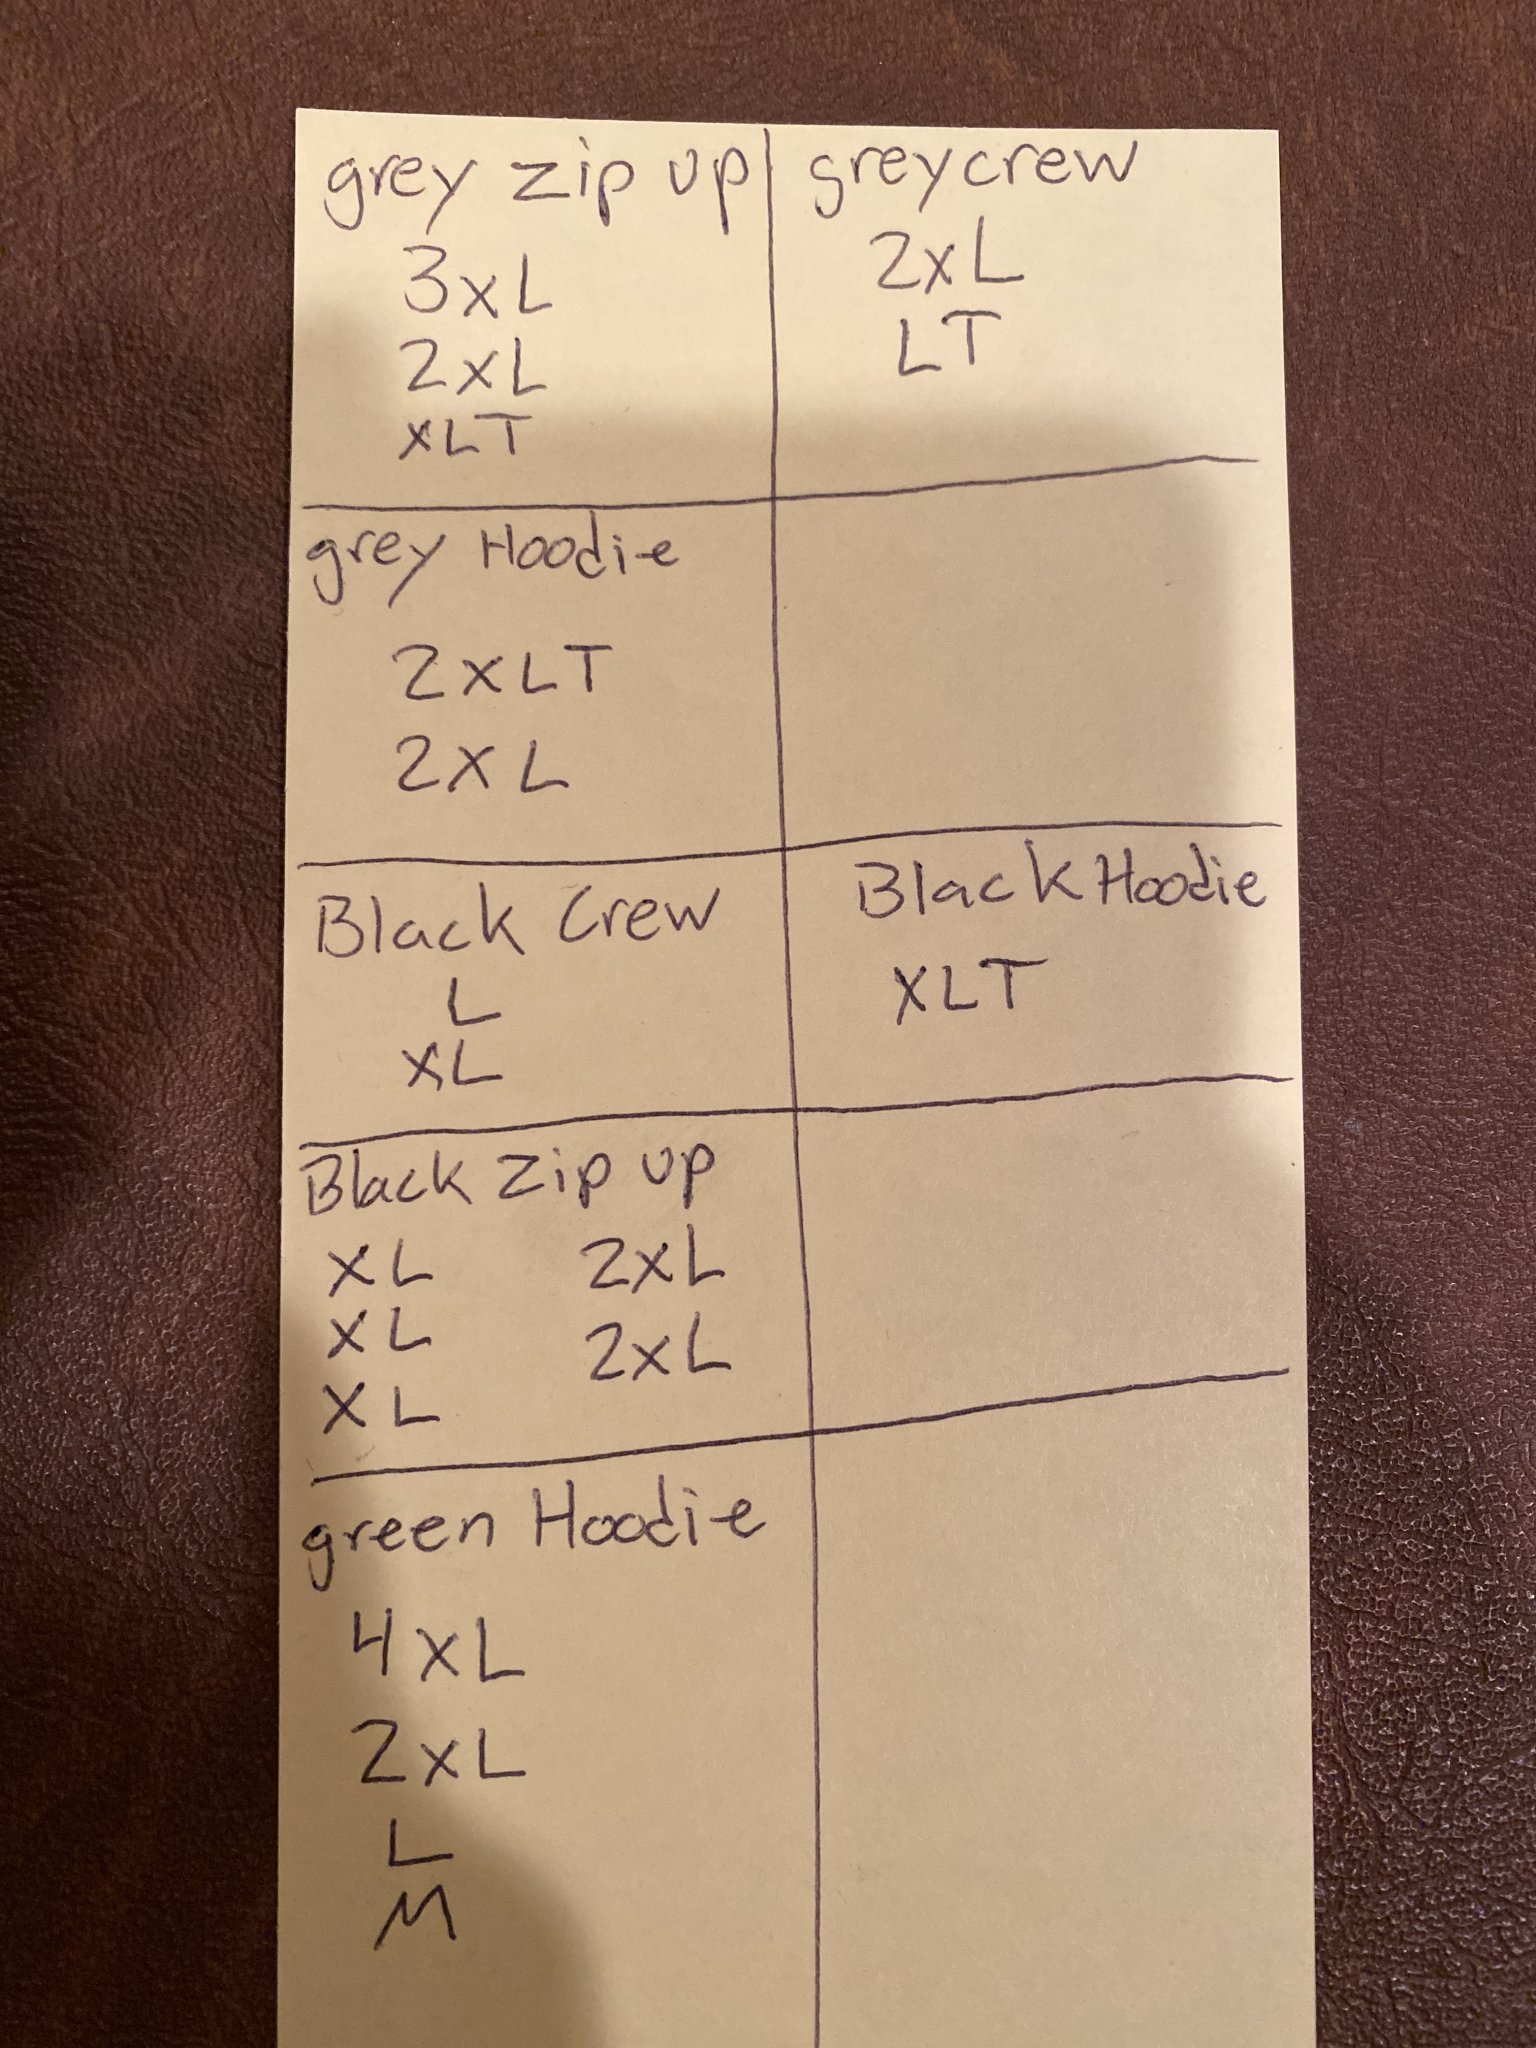 grey zip up
3xL
2xL
xLT
grey crew
2xL
LT
grey Hoodie
2XLT
2XL
Black Crew
L
XL
Black Hoodie
XLT
Black Zip up
XL 2xL
XL 2xL
XL
green Hoodie
4XL
2xL
L
M